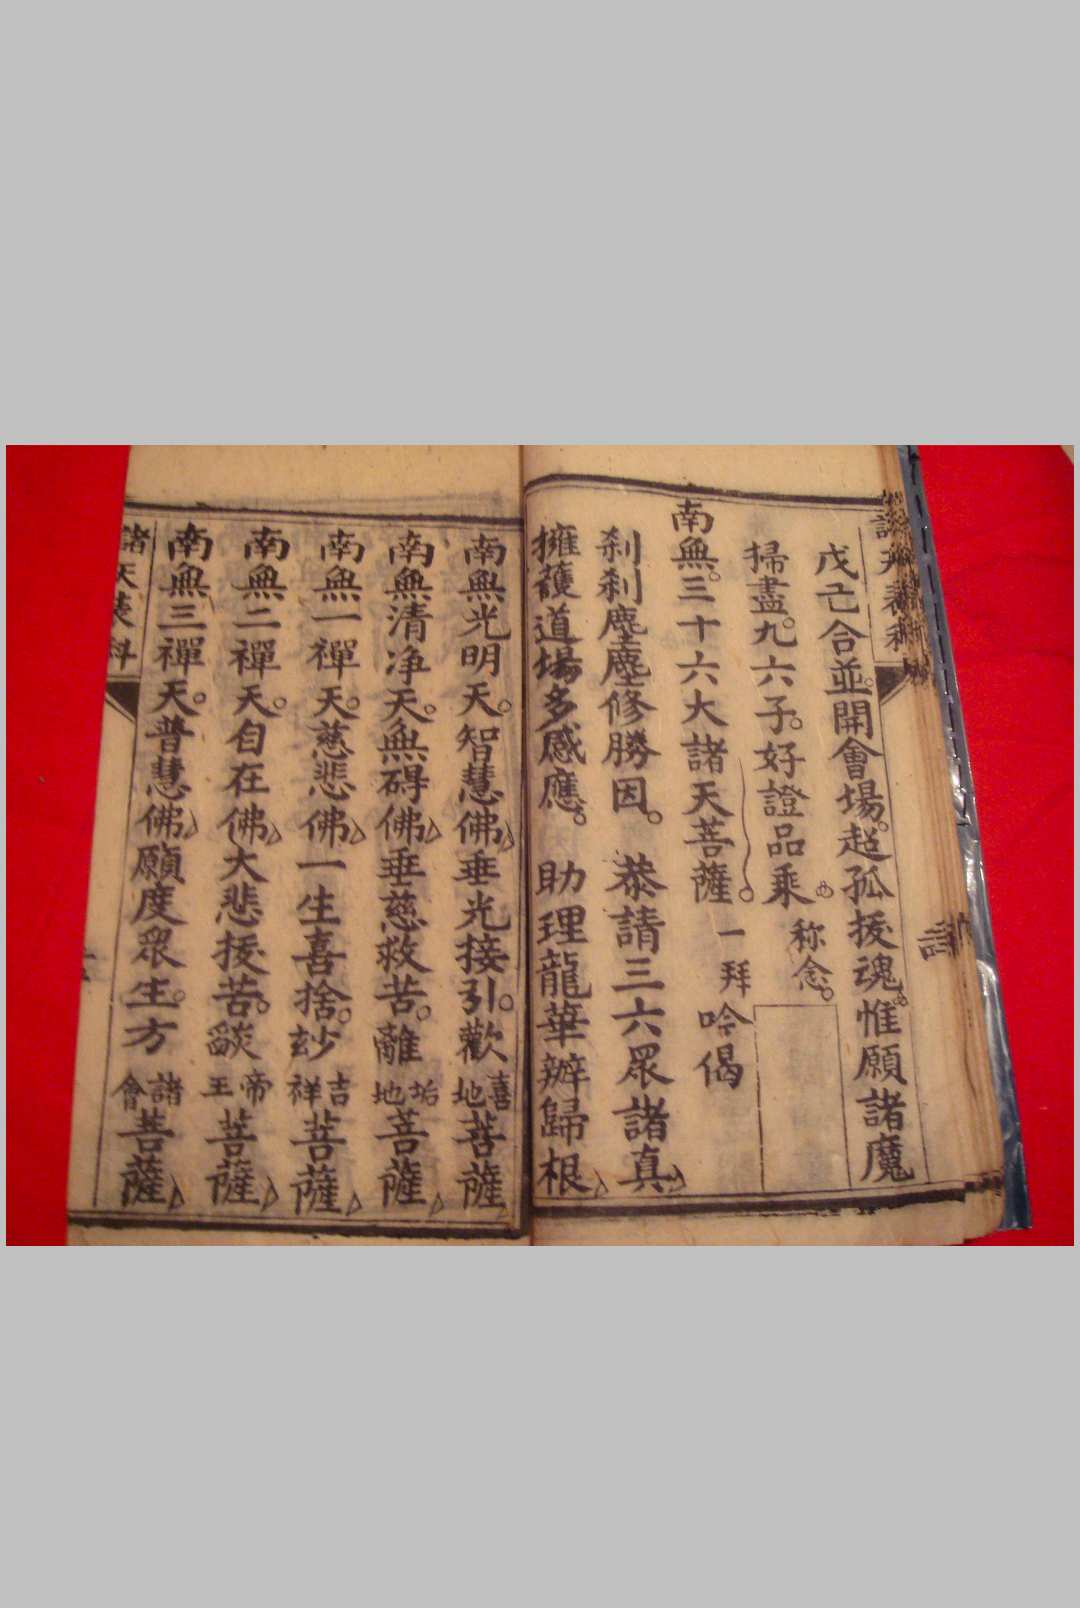 戊己合並。開會場。超孤拔魂。惟願諸魔
掃盡。九六子。好證品乘。称念。
南無。三十六大諸天菩薩。一拜 吟偈
刹刹塵塵修勝因。 恭請三六眾諸真
擁護道場多感應。 助理龍華辦歸根
南無光明天。智慧佛 垂光接引。歡喜地菩薩
南無清净天。無碍佛 垂慈救苦。離垢地菩薩
南無一禪天。慈悲佛 一生喜捨。玅吉祥菩薩
南無二禪天。自在佛 大悲拔苦。燄帝王菩薩
南無三禪天。普慧佛 願度眾生。方諸會菩薩
諸天表科